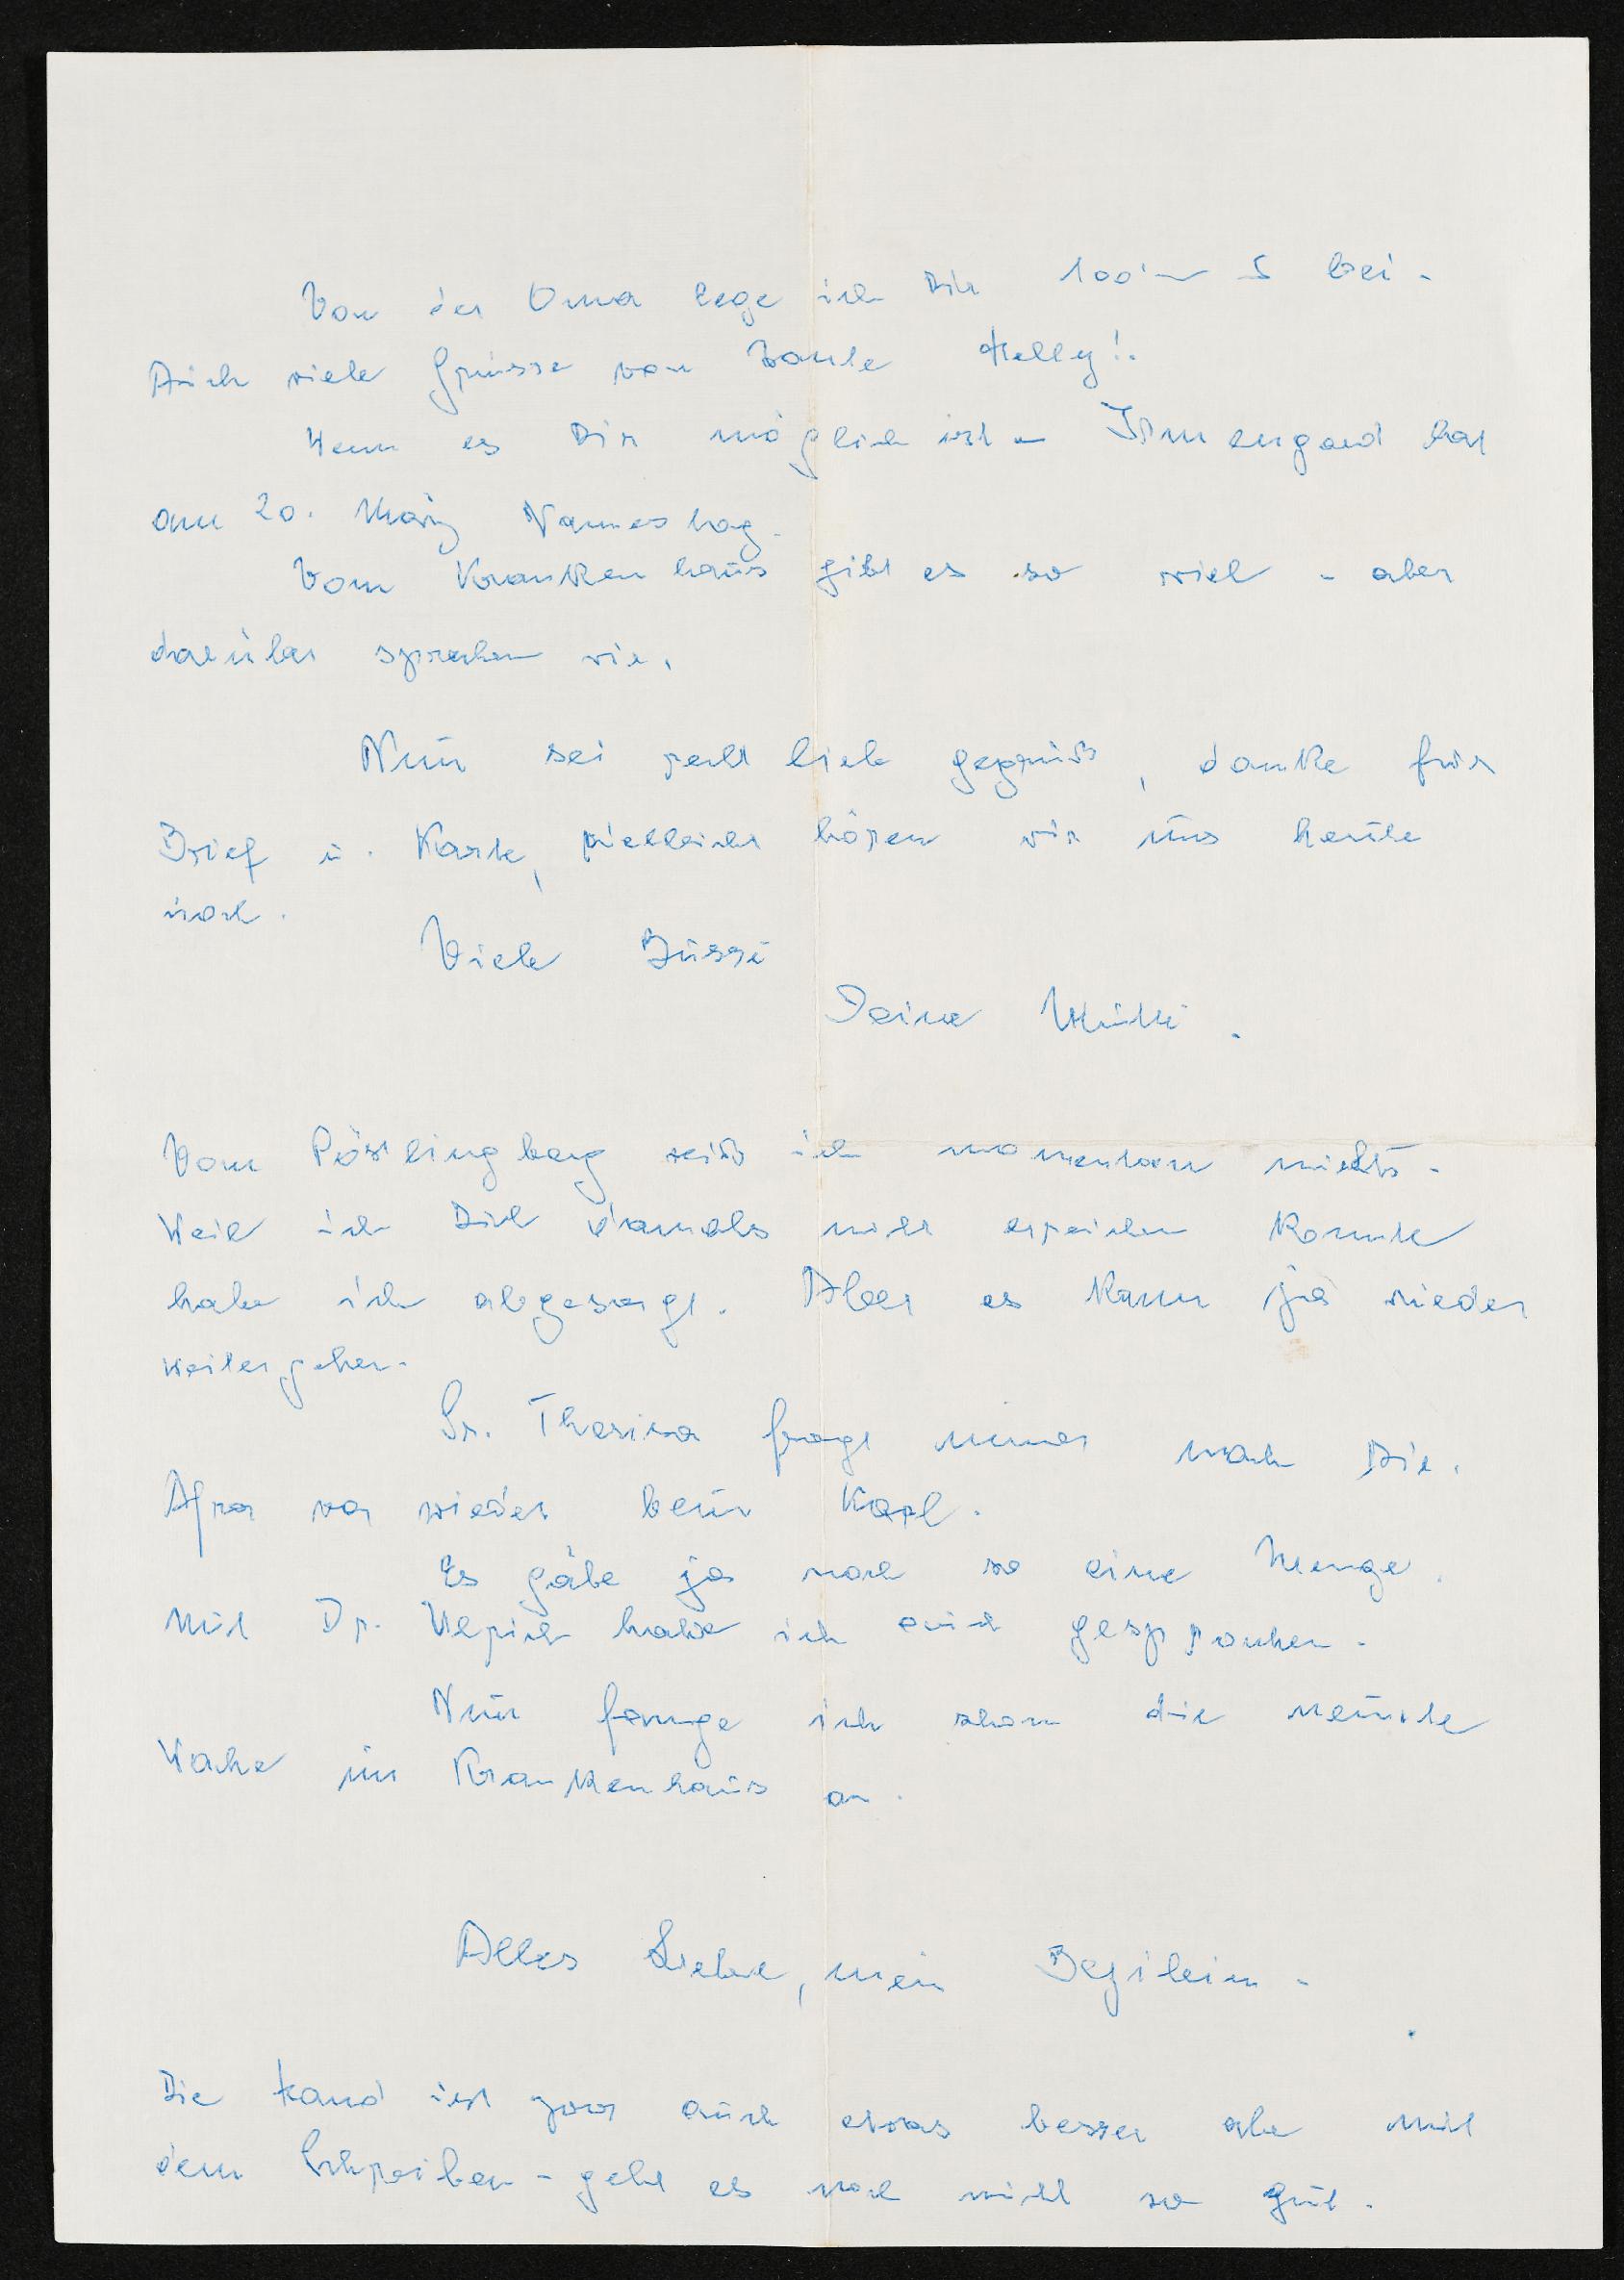 Von der Oma lege ich Dir 100'– S bei.
Auch viele Grüsse von Tante Helly!
Wenn es Dir möglich ist – Irmengard hat
am 20. März Namestag.
Vom Krankenhaus gibt es so viel – aber
darüber sprechen wir.
Nun sei recht lieb gegrüßt, danke für
Brief u. Karte, vielleicht hören wir uns heute
noch.
Viele Bussi
Deine Mutti.
Vom Pöstlingberg weiß ich momentan nichts.
Weil ich Dich damals nicht erreichen konnte
habe ich abgesagt. Aber es kann ja wieder
weitergehen.
Sr. Theresa fragt immer nach Dir.
Afra war wieder beim Karl.
Es gäbe ja noch so eine Menge.
Mit Dr. Ulrich habe ich auch gesprochen.
Nun fange ich schon die neunte
Woche im Krankenhaus an.
Alles Liebe, mein
Die Hand ist zwar auch etwas besser aber mit
dem Schreiben – geht es noch nicht so gut.